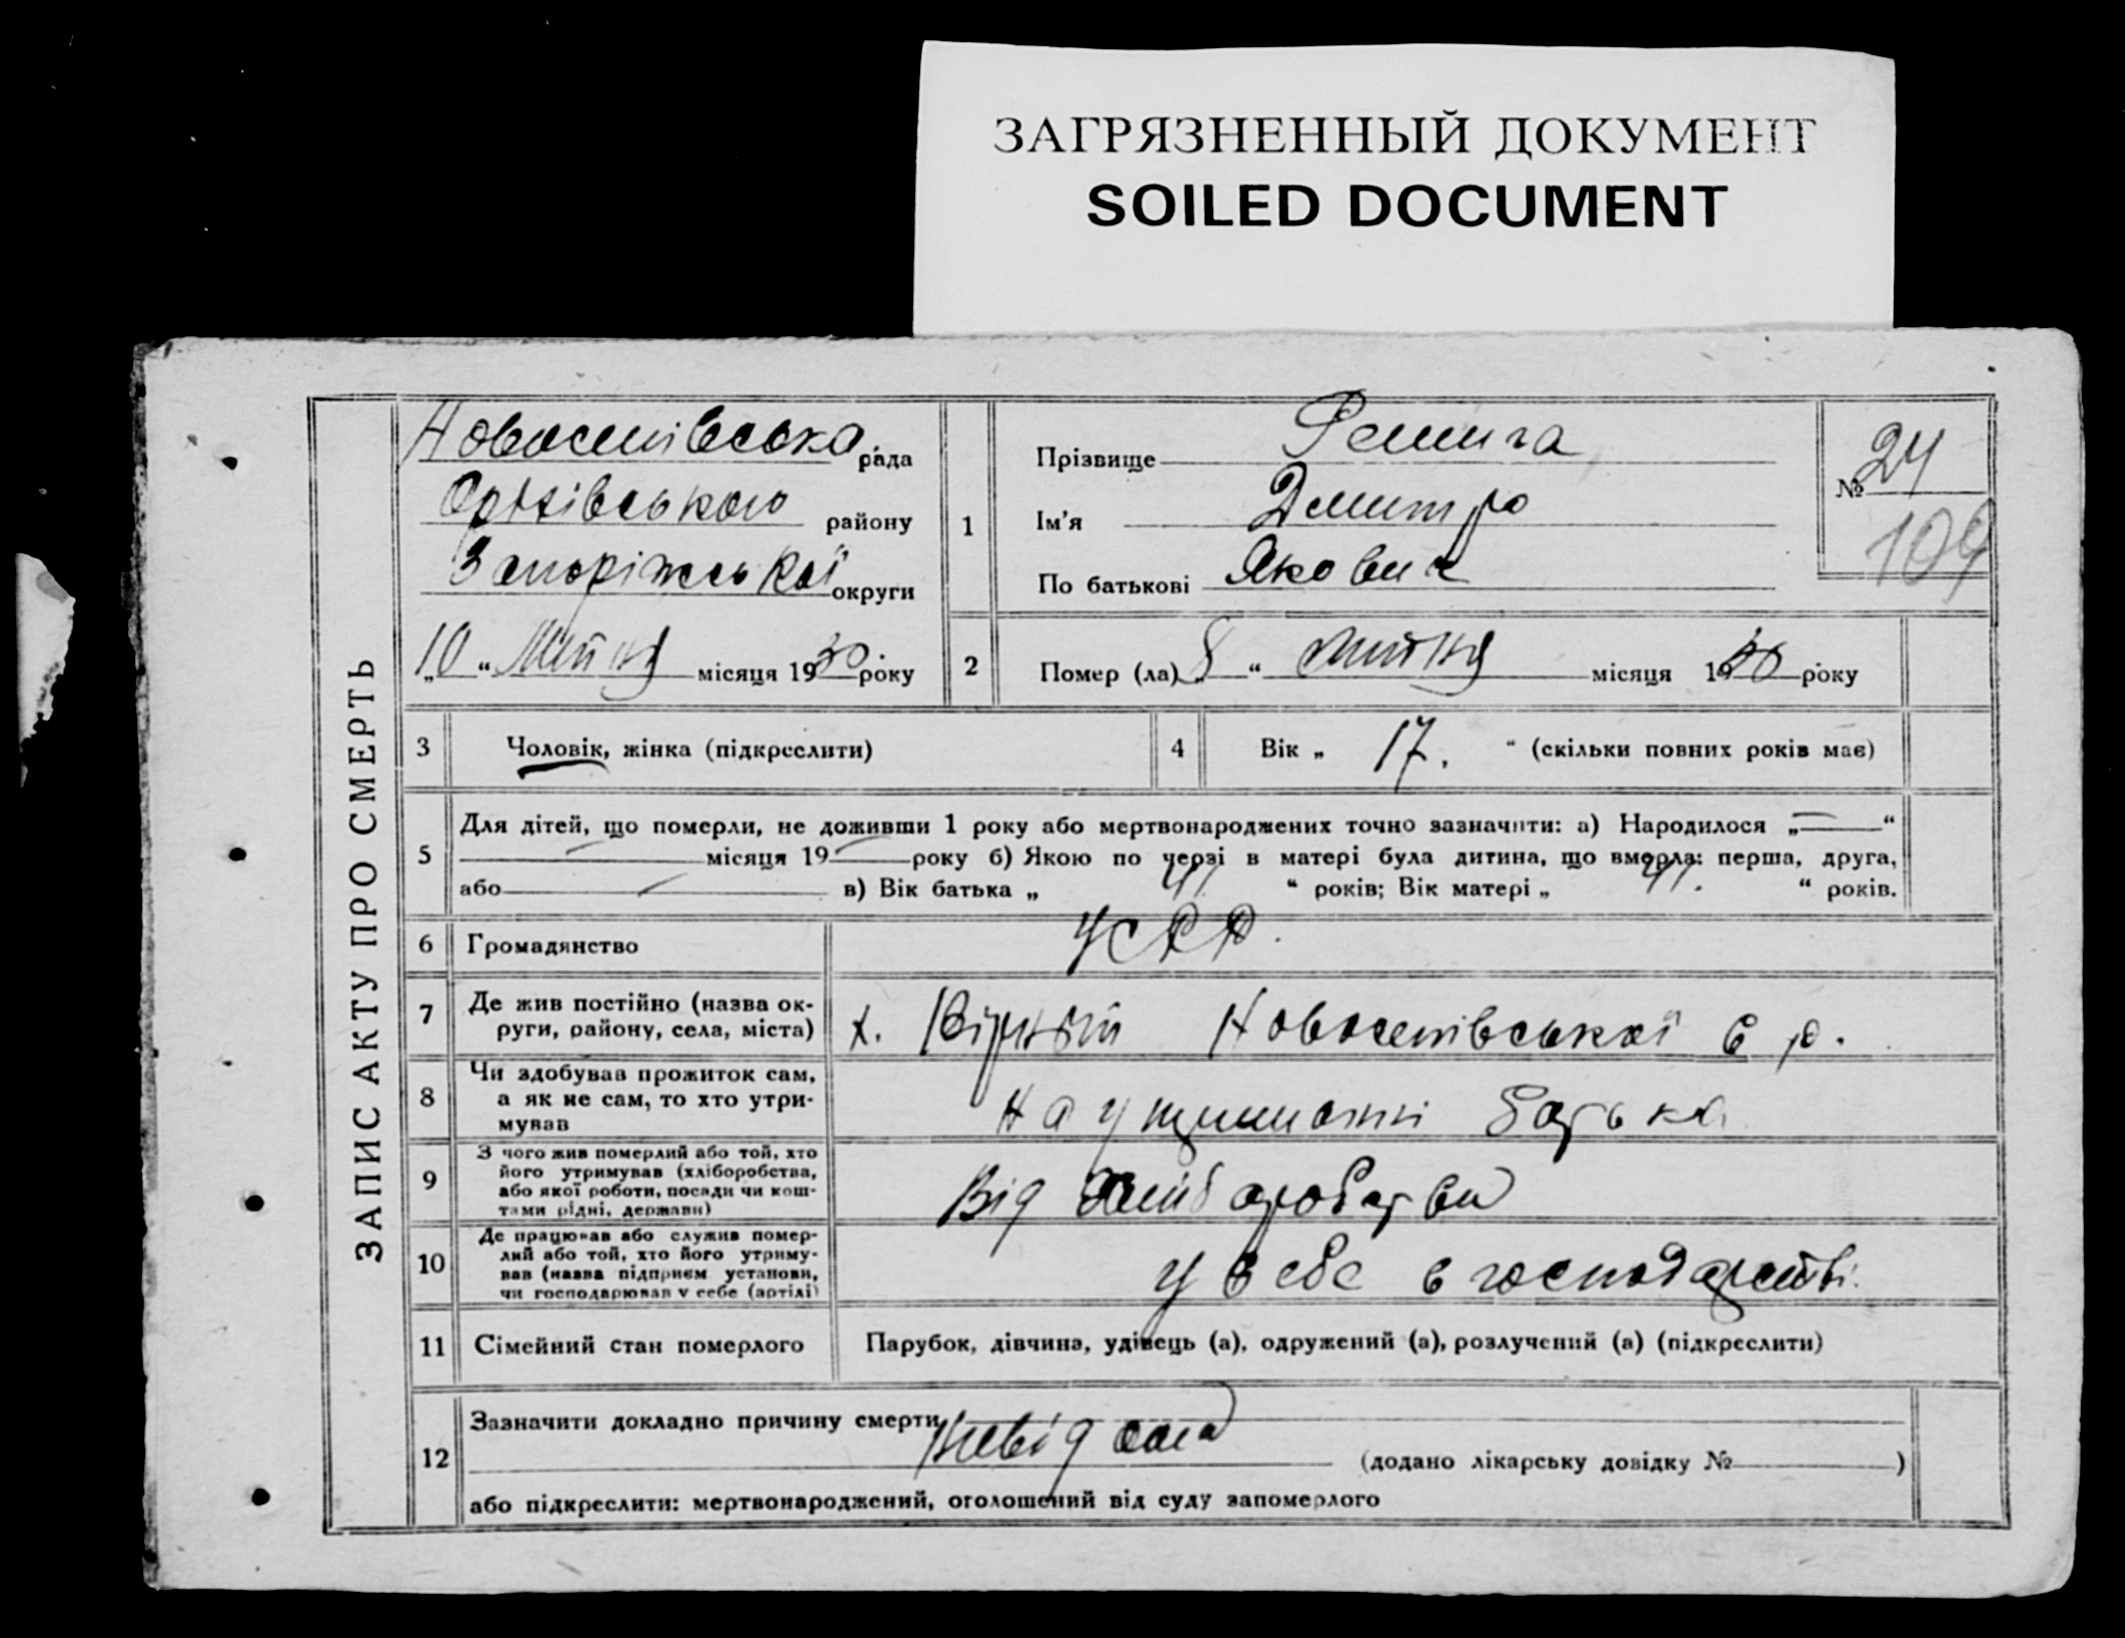 ЗАГРЯЗНЕННЫЙ ДОКУМЕНТ
SOILED DOCUMENT
ЗАПИС АКТУ ПРО СМЕРТЬ
рада
району
Запоріжської округи
„10“ місяця 1930 року
1
Прізвище
Ім'я Дмитро
По батькові Якович
№ 24
109
2
Помер (ла) „8“ місяця 1930 року
3
Чоловік, жінка (підкреслити)
4
Вік „ 17. “ (скільки повних років має)
5
Для дітей, що померли, не доживши 1 року або мертвонароджених точно зазначити: а) Народилося „—“
місяця 19 року б) Якою по черзі в матері була дитина, що вмерла: перша, друга,
або в) Вік батька „ 41. “ років; Вік матері „ 41. “ років.
6
Громадянство
УСРР.
7
Де жив постійно (назва ок-
руги, району, села, міста)
х. с р.
8
Чи здобував прожиток сам,
а як не сам, то хто утри-
мував
На утриманні батька
9
З чого жив померлий або той, хто
його утримував (хліборобства,
або якої роботи, посади чи кош-
тами рідні, держави)
Від хліборобства
10
Де працював або служив помер-
лий або той, хто його утриму-
вав (назва підприєм установи,
чи господарював у себе (артілі)
у себе в господарстві.
11
Сімейний стан померлого
Парубок, дівчина, удівець (а), одружений (а), розлучений (а) (підкреслити)
12
Зазначити докладно причину смерти
(додано лікарську довідку № )
або підкреслити: мертвонароджений, оголошений від суду запомерлого